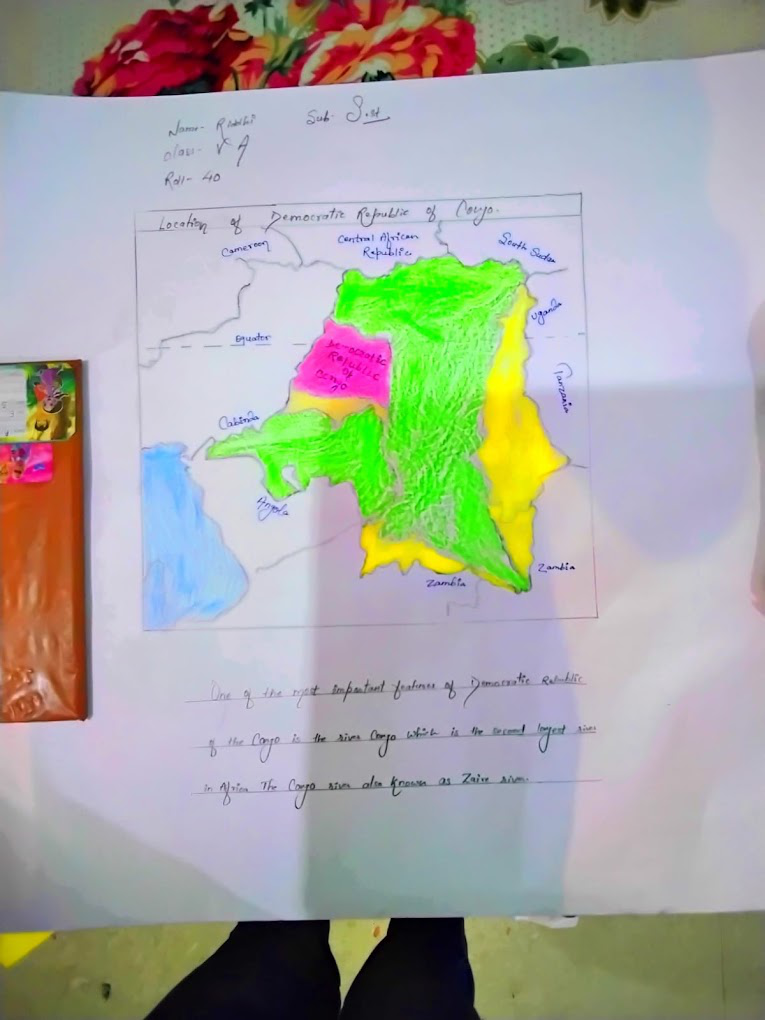 Name- Riddhi
Sub- S.st
Class- V A
Roll- 40
Location of Democratic Republic of Congo.
Cameroon
Central African
Republic
South Sudan
Uganda
equator
Democratic
Republic
of
Congo
Tanzania
Cabinda
Angola
Zambia
Zambia
One of the most important features of Democratic Republic
of the Congo is the river Congo which is the second largest river
in Africa The Congo river also known as Zaire river.